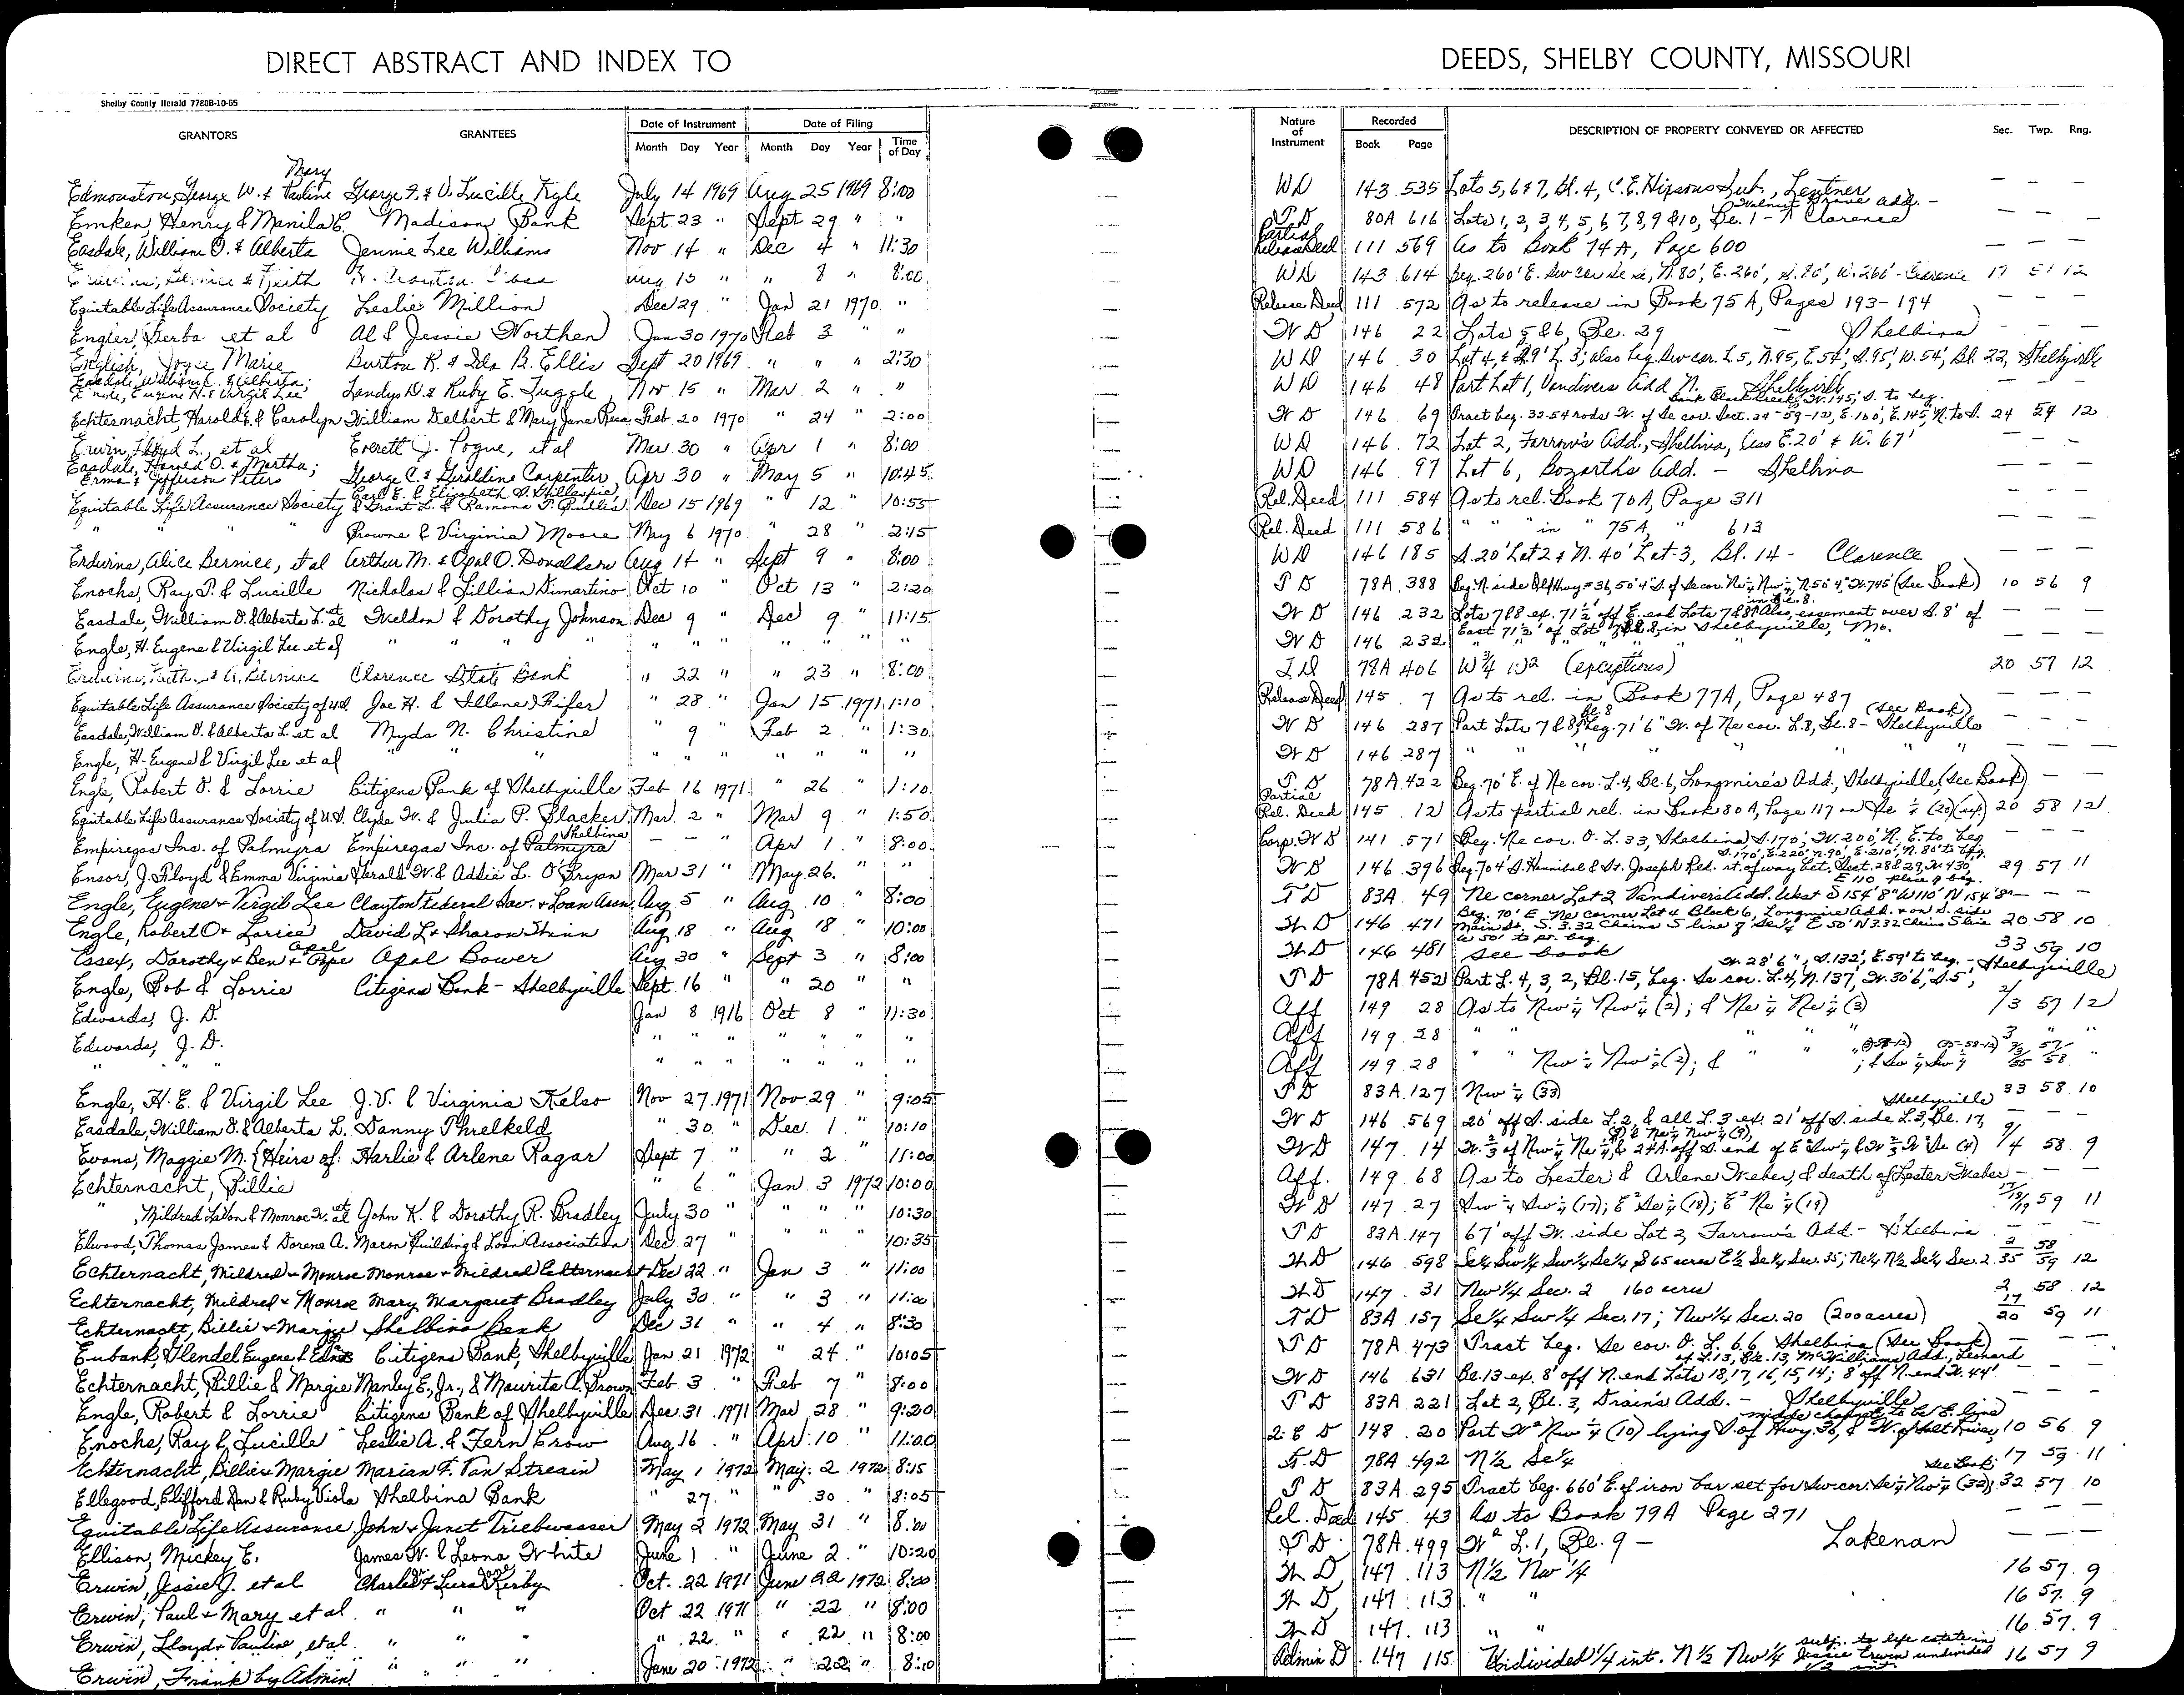 DIRECT ABSTRACT AND INDEX TO DEEDS, SHELBY COUNTY, MISSOURI
Shelby County Herald 7780B-10-65
GRANTORS GRANTEES Date of Instrument Month Day Year Date of Filing Month Day Year Time of Day Nature of Instrument Recorded Book Page DESCRIPTION OF PROPERTY CONVEYED OR AFFECTED Sec. Twp. Rng.
Mary
Edmonston, George W. & Pauline George F. & V. Lucille Kyle July 14 1969 Aug 25 1969 8:00 WD 143 535 Lots 5, 6 & 7, Bl. 4, C.E. Hipsons Sub., Lentner — — —
Emken, Henry & Manila E. Madison Bank Sept 23 " Sept 29 " " TD 80A 616 Lots 1, 2, 3, 4, 5, 6, 7, 8, 9 & 10, Bl. 1 - Walnut Grove add. - Clarence — — —
Easdale, William O. & Alberta Jennie Lee Williams Nov 14 " Dec 4 " 11:30 Partial Release Deed 111 569 As to Book 74A, Page 600 — — —
& Keith Cross Aug 15 " " 8 " 8:00 WD 143 614 Beg. 260' E. Sw cor Se Se, N. 80', E. 260', S. 80', W. 260' - Clarence 17 57 12
Equitable Life Assurance Society Leslie Million Dec 29 " Jan 21 1970 " Release Deed 111 572 As to release in Book 75A, Pages 193-194 — — —
Engler, Berba et al Al & Jessie Northen Jan 30 1970 Feb 3 " " WD 146 22 Lots 5 & 6, Bl. 29 - Shelbina — — —
English, Joyce Marie Burton K. & Ida B. Ellis Sept 20 1969 " " " 2:30 WD 146 30 Lot 4, & S.9' L. 3; also beg. Sw cor. L 5, N. 95, E. 54', S. 95', W. 54', Bl. 22, Shelbyville
Easdale, William O. & Alberta; Engle, Eugene H. & Virgil Lee Landys D. & Ruby E. Tuggle Nov 15 " Mar 2 " " WD 146 48 Part Lot 1, Vandivers Add N. Shelbyville — — —
Echternacht, Harold E. & Carolyn William Delbert & Mary Jane Ress Feb 20 1970 " 24 " 2:00 WD 146 69 Tract beg. 32.54 rods W. of Se cor. Sect. 24-59-12, E. 100', E. 145', N. to Bank Black Creek, W. 145', S. to beg. 24 59 12
Erwin, Lloyd L., et al Everett J. Pogue, et al Mar 30 " Apr 1 " 8:00 WD 146 72 Lot 2, Farrow's Add., Shelbina, less E. 20' & W. 67' — — —
Easdale, Harred O. & Martha; Erma & Jefferson Peters George C. & Geraldine Carpenter Apr 30 " May 5 " 10:45 WD 146 97 Lot 6, Bozarth's Add. - Shelbina — — —
Equitable Life Assurance Society Earl E. & Elizabeth S. Gillaspie, & Grant L. & Ramona P. Quillis Dec 15 1969 " 12 " 10:55 Rel. Deed 111 584 As to rel. Book 70A, Page 311 — — —
" " " Browne & Virginia Moore May 6 1970 " 28 " 2:15 Rel. Deed 111 586 " " " in " 75A, " 613 — — —
Erdwins, Alice Bernice, et al Arthur M. & Opal O. Donaldson Aug 14 " Sept 9 " 8:00 WD 146 185 S. 20' Lot 2 & N. 40' Lot 3, Bl. 14 - Clarence — — —
Enochs, Ray T. & Lucille Nicholas & Lillian Dimartino Oct 10 " Oct 13 " 2:20 TD 78A 388 Beg. N. side Old Hwy #36, 50'4" S. of Se cor. Ne¼ Nw¼, N. 50'4", W. 745' (See Book) 10 56 9
Easdale, William O. & Alberta L. et al Weldon & Dorothy Johnson Dec 9 " Dec 9 " 11:15 WD 146 232 Lots 7 & 8 ex. 71½' off E. end Lots 7 & 8 in Bl. 8. Also, easement over S. 8' of — — —
Engle, H. Eugene & Virgil Lee et al " " " " " " " " WD 146 232 East 71½' of Lot 7 Bl. 8, in Shelbyville, Mo. — — —
Erdwins, Keith & A. Bernice Clarence State Bank " 22 " " 23 " 8:00 TD 78A 406 W ¾ W2 (exceptions) 20 57 12
Equitable Life Assurance Society of U.S. Joe H. & Illene Fifer " 28 " Jan 15 1971 1:10 Release Deed 145 7 As to rel. in Book 77A, Page 487 — — —
Easdale, William O. & Alberta L. et al Myda N. Christine " 9 " Feb 2 " 1:30 WD 146 287 Part Lots 7 & 8, Bl. 8 beg. 71'6" W. of Ne cor. L. 8, Bl. 8 - Shelbyville (See Book) — — —
Engle, H. Eugene & Virgil Lee et al " " " " " " " " " WD 146 287 " " " " " " — — —
Engle, Robert O. & Lorrie Citizens Bank of Shelbyville Feb 16 1971 " 26 " 1:10 TD 78A 422 Beg. 70' E. of Ne cor. L. 4, Bl. 6, Longmire's Add., Shelbyville, (See Book) — —
Equitable Life Assurance Society of U.S. Clyde W. & Julia P. Blacker Mar. 2 " Mar 9 " 1:50 Partial Rel. Deed 145 12 As to partial rel. in Book 80A, Page 117 on Se ¼ (20)(ex.) 20 58 12
Empiregas Inc. of Palmyra Empiregas Inc. of Shelbina — — " Apr 1 " 8:00 Corp. WD 141 571 Beg. Ne cor. O. L. 33, Shelbina, S. 170', W. 200', N., E. to beg — — —
Ensor, J. Floyd & Emma Virginia Gerald W. & Addie L. O'Bryan Mar 31 " May 26. " WD 146 396 Beg. 704' S. Hannibal & St. Joseph Rd. rt. of way bet. Sect. 28 & 29, W. 430', S. 170', E. 220', N. 90', E. 210', N. 80' to beg. 29 57 11
Engle, Eugene & Virgil Lee Clayton Federal Sav. & Loan Assn. Aug 5 " Aug 10 " 8:00 TD 83A 49 Ne corner Lot 2 Vandivers Add. West S 154'8" W 110' N 154'8" E 110 place of beg. — — —
Engle, Robert O & Lorrie David L & Sharon Aug 18 " Aug 18 " 10:00 WD 146 471 Beg. 70' E. Ne corner Lot 4 Block 6, Longmire Add. & on S. side Main St. S. 3.32 Chains S line of Se¼ E 50' N 3.32 Chains S line W 50' to pt. beg. 20 58 10
Essex, Dorothy & Ben & Opal Pope Opal Bower Aug 30 " Sept 3 " 8:00 WD 146 481 See book 33 59 10
Engle, Bob & Lorrie Citizens Bank - Shelbyville Sept. 16 " " 20 " " TD 78A 452 Part L. 4, 3, 2, Bl. 15, beg. Se cor. L. 4, N. 137', W. 30'6", S. 5', W. 28'6", S. 132', E. 59' to beg. - Shelbyville
Edwards, J. D. Jan 8 1916 Oct 8 " 11:30 Aff 149 28 As to Nw¼ Nw¼ (2); & Ne¼ Ne¼ (3) 2/3 57 12
Edwards, J. D. " " " " " " " Aff 149 28 " " " " 3 " "
" " " " " " " " " Aff 149 28 " " Nw¼ Nw¼ (2); & " " ; & Sw¼ Sw¼ (35-58-12)
Engle, H. E. & Virgil Lee J. V. & Virginia Kelso Nov 27 1971 Nov 29 " 9:05 TD 83A 127 Nw¼ (33) 33 58 10
Easdale, William O. & Alberta L. Danny Threlkeld " 30 " Dec. 1 " 10:10 WD 146 569 20' off S. side L. 2, & all L. 3 ex. 21' off S. side L. 3, Bl. 17, Shelbyville — — —
Evans, Maggie M. {Heirs of: Harlie & Arlene Ragar Sept 7 " " 2 " 11:00 WD 147 14 9/4 58 9
Echternacht, Billie " 6 " Jan 3 1972 10:00 Aff. 149 68 As to Lester & Arlene Weber, & death of Lester Weber — — —
" , Mildred LaVon & Monroe W. et al John K. & Dorothy R. Bradley July 30 " " " " 10:30 WD 147 27 Sw¼ Sw¼ (17); E² Se¼ (18); E² Ne¼ (19) 17/18/19 59 11
Elwood, Thomas James & Dorene A. Macon Building & Loan Association Dec 27 " " " 10:35 TD 83A 147 67' off W. side Lot 2 Farrow's Add - Shelbina — — —
Echternacht, Mildred & Monroe Monroe & Mildred Echternacht Dec 22 " Jan 3 " 11:00 WD 146 598 Se¼ Sw¼ Sw¼ Se¼ & 65 acres E½ Se¼ Sec. 35; Ne¼ N½ Se¼ Sec. 2 2/35 58/59 12
Echternacht, Mildred & Monroe Mary Margaret Bradley July 30 " " 3 " 11:00 WD 147 31 Nw¼ Sec. 2 160 acres 2 58 12
Echternacht, Billie & Margie Shelbina Bank Dec 31 " " 4 " 8:30 TD 83A 157 Se¼ Sw¼ Sec. 17; Nw¼ Sec. 20 (200 acres) 17/20 59 11
Eubank, Glendel Eugene & Edna Citizens Bank, Shelbyville Jan 21 1972 " 24 " 10:05 TD 78A 473 Tract beg. Se cor. O. L. 66 Shelbina (See Book) — — —
Echternacht, Billie & Margie Manley E., Jr., & Maurita A. Brown Feb 3 " Feb 7 " 8:00 WD 146 631 Bl. 13 ex. 8' off N. end Lots 18, 17, 16, 15, 14; 8' off N. end W. 44' of L. 13, Blk. 13, McWilliams Add., Leonard — — —
Engle, Robert & Lorrie Citizens Bank of Shelbyville Dec 31 1971 Mar 28 " 9:20 TD 83A 221 Lot 2, Bl. 3, Drain's Add. - Shelbyville — — —
Enochs, Ray & Lucille Leslie A. & Fern Crow Aug 16 " Apr 10 " 11:00 148 20 Part W² Nw¼ (10) lying S. of Hwy. 36, & W. of Salt River, middle channel to be E. line 10 56 9
Echternacht, Billie & Margie Marian F. Van Streain May 1 1972 May 2 1972 8:15 78A 492 N½ Se¼ 17 59 11
Ellegood, Clifford Dan & Ruby Viola Shelbina Bank " 27 " " 30 " 8:05 TD 83A 295 Tract beg. 660' E. of iron bar set for Sw cor. Se¼ Nw¼ (32); See Book 32 57 10
Equitable Life Assurance John & Janet Triebwasser May 2 1972 May 31 " 8:00 Rel. Deed 145 43 As to Book 79A Page 271 — — —
Ellison, Mickey E. James W. & Leona White June 1 " June 2 " 10:20 TD 78A 499 W² L. 1, Bl. 9 - Lakenan — — —
Erwin, Jessie J. et al Charles & Lura Kirby Oct. 22 1971 June 22 1972 8:00 WD 147 113 N½ Nw¼ 16 57 9
Erwin, Paul & Mary et al. " " " Oct 22 1971 " 22 " 8:00 WD 147 113 " " 16 57 9
Erwin, Lloyd & Pauline, et al. " " " " 22 " " 22 " 8:00 WD 147 113 " " 16 57 9
Erwin, Frank by Admin " " " June 20 1972 " 22 " 8:10 Admin D. 147 115 Undivided ¼ int. N½ Nw¼ subj. to life estate in Jessie Erwin undivided ½ int. 16 57 9